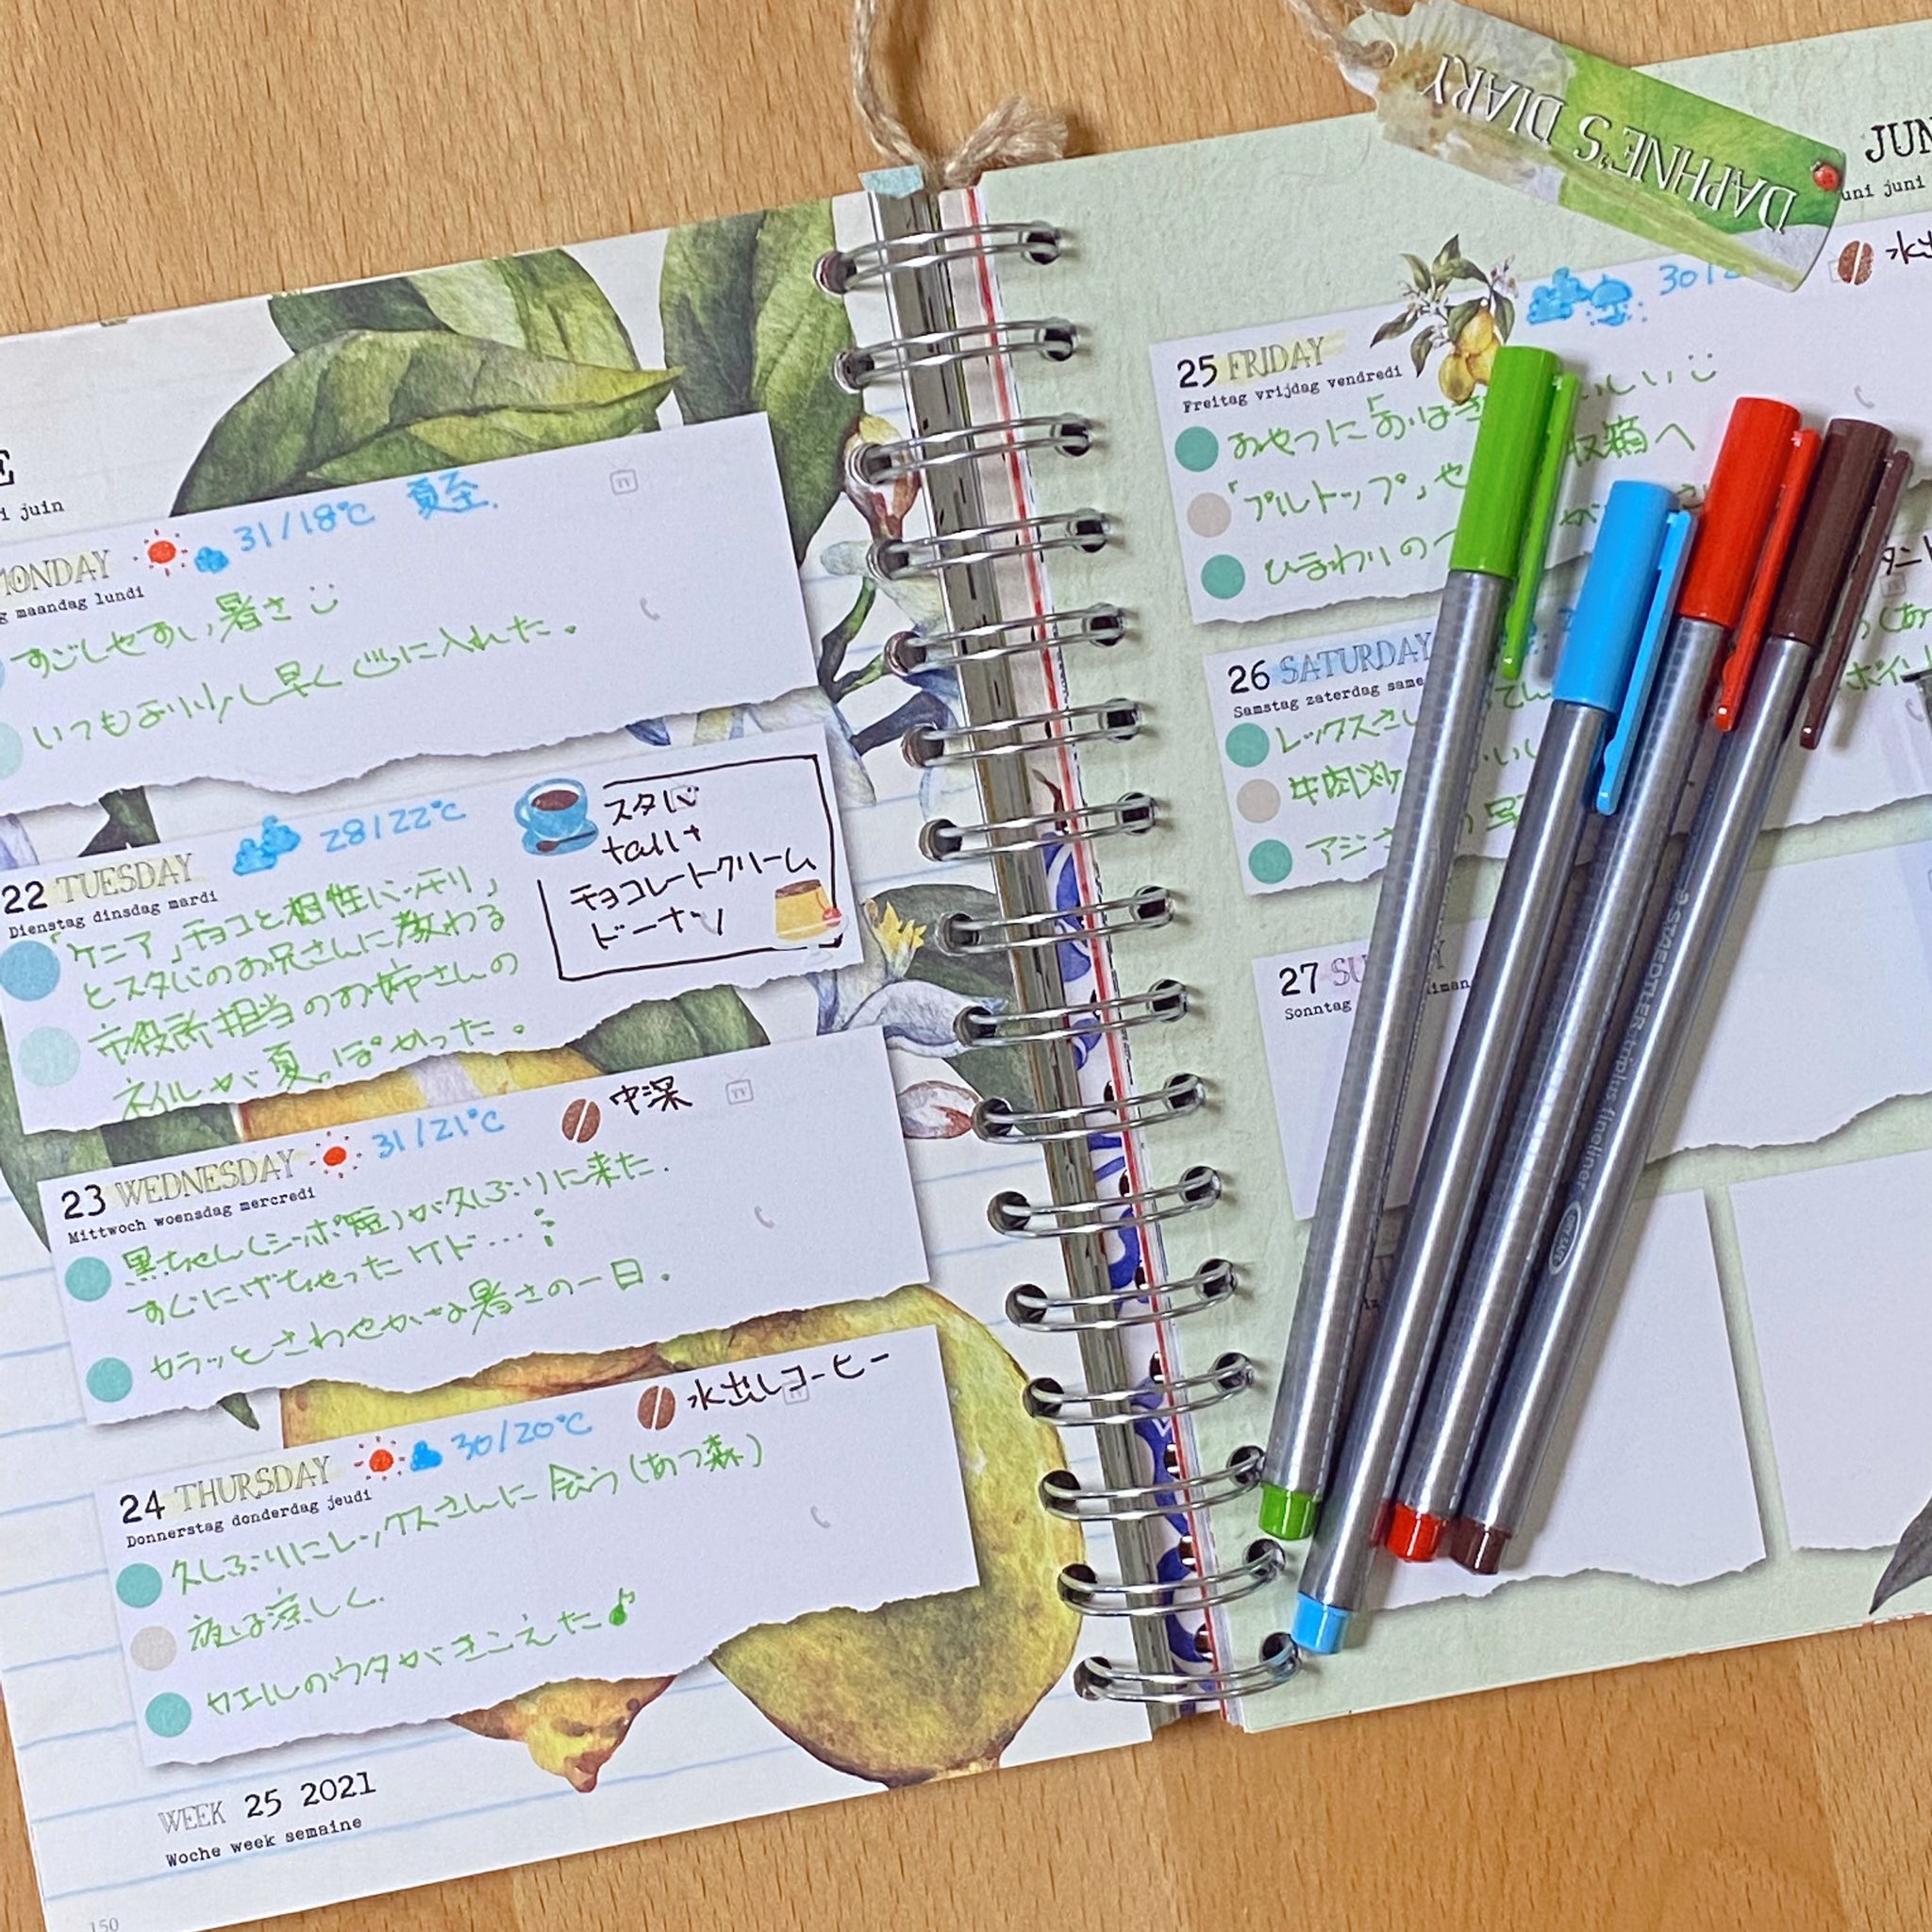 E
i juin
MONDAY
31/18℃ 夏至.
g maandag lundi
すごしやすい暑さ
いつもより少し早く に入れた。
22 TUESDAY
28/22℃
Dienstag dinsdag mardi
「ケニア」チョコと相性バッチリ」
とスタバのお兄さんに教わる
市役所担当のお姉さんの
ネイルが夏っぽかった。
スタバ
tall+
チョコレートクリーム
ドーナツ
23 WEDNESDAY
31/21℃
中深
TV
Mittwoch woensdag mercredi
黒ちゃん(シッポ短)が久しぶりに来た.
すぐにげちゃったケド…
カラッとさわやかな暑さの一日。
24 THURSDAY
30/20℃
水出しコーヒー
Donnerstag donderdag jeudi
久しぶりにレックスさんに会う(あつ森)
夜は涼しく.
カエルのウタがきこえた♪
WEEK 25 2021
Woche week semaine
150
DAPHNE'S DIARY
JUN
uni juni
25 FRIDAY
30/2
水出
Freitag vrijdag vendredi
おやつに「おはぎ
いしい
「プルトップ」や
収箱へ
ひまわりの
26 SATURDAY
Samstag zaterdag same
レックスさ
牛肉
いし
アジサ
写
27 SU
Sonntag
iman
STAEDTLER triplus fineliner